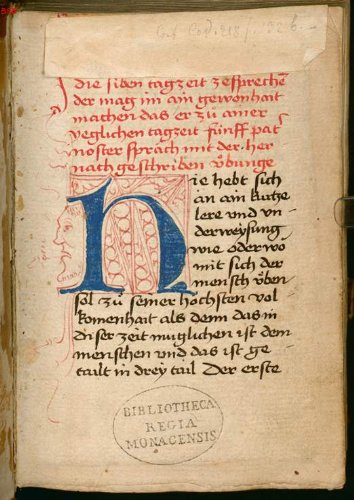 die siben tagzeit zesprechē
der mag im ain gewonhait
machen das er zů ainer
yeglichen tagzeit fünff pat
noster spräch mit der her
nach geschriben v̊bunge
Hie hebt sich
an ain kutze
lere vnd vn
derweysung
wie oder wo
mit sich der
mensch v̊ben
sol zů seiner höchsten vol
komenhait als denn das in
diser zeit muglichen ist dem
menschen vnd das ist ge
tailt in drey tail Der erste
BIBLIOTHECA
REGIA
MONACENSIS